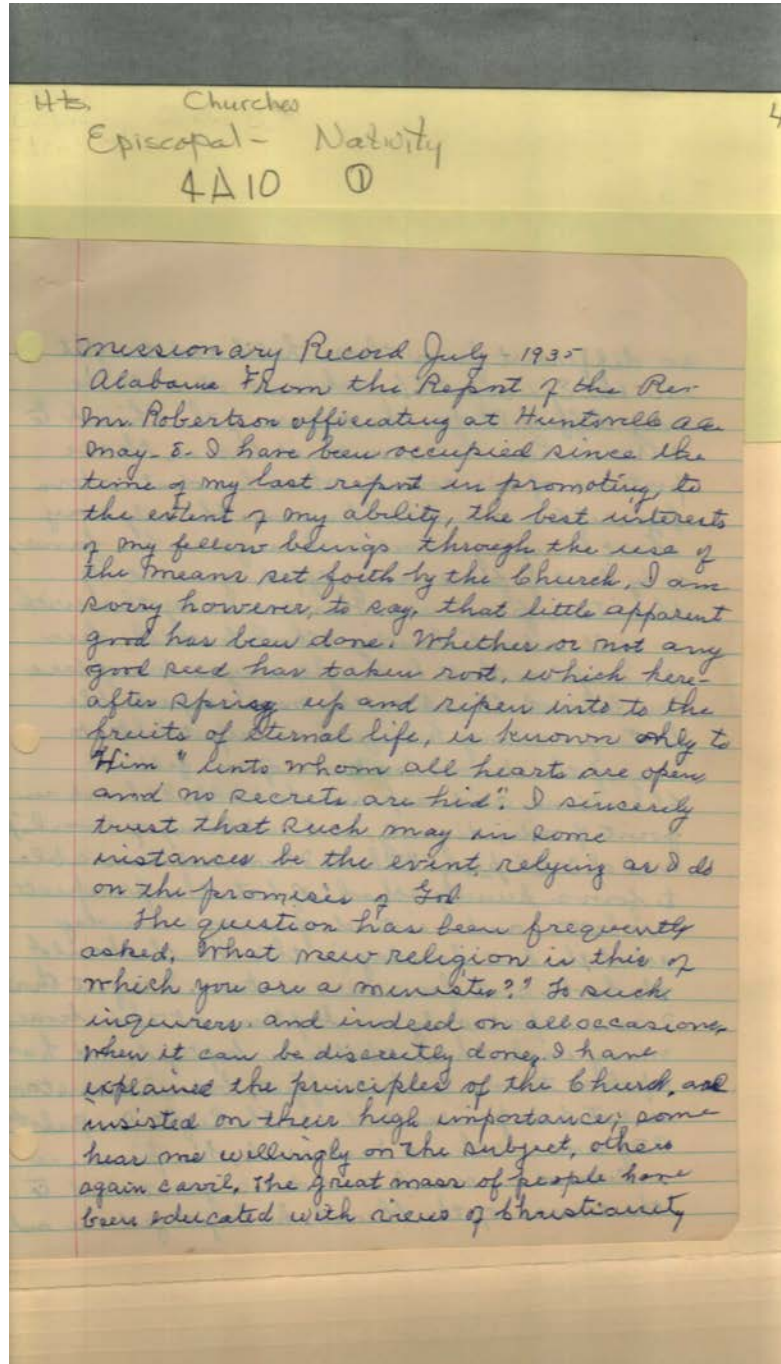 Hts. Churches
Episcopal - Nativity
4A10 ①
4
Missionary Record July - 1935
Alabama From the Report of the Rev
Mr. Robertson officiating at Huntsville Ala
May - 8 - I have been occupied since the
time of my last report in promoting, to
the extent of my ability, the best interests
of my fellow beings through the use of
the means set forth by the Church, I am
sorry however, to say, that little apparent
good has been done. Whether or not any
good seed has taken root, which here-
after spring up and ripen into to the
fruits of eternal life, is known only to
Him "unto whom all hearts are open
and no secrets are hid". I sincerely
trust that such may in some
instances be the event, relying as I do
on the promises of God
The question has been frequently
asked, What new religion is this of
which you are a minister?" To such
inquirers, and indeed on all occasions,
when it can be discreetly done, I have
explained the principles of the Church, and
insisted on their high importance; some
hear me willingly on the subject, others
again cavil. The great mass of people have
been educated with views of Christianity